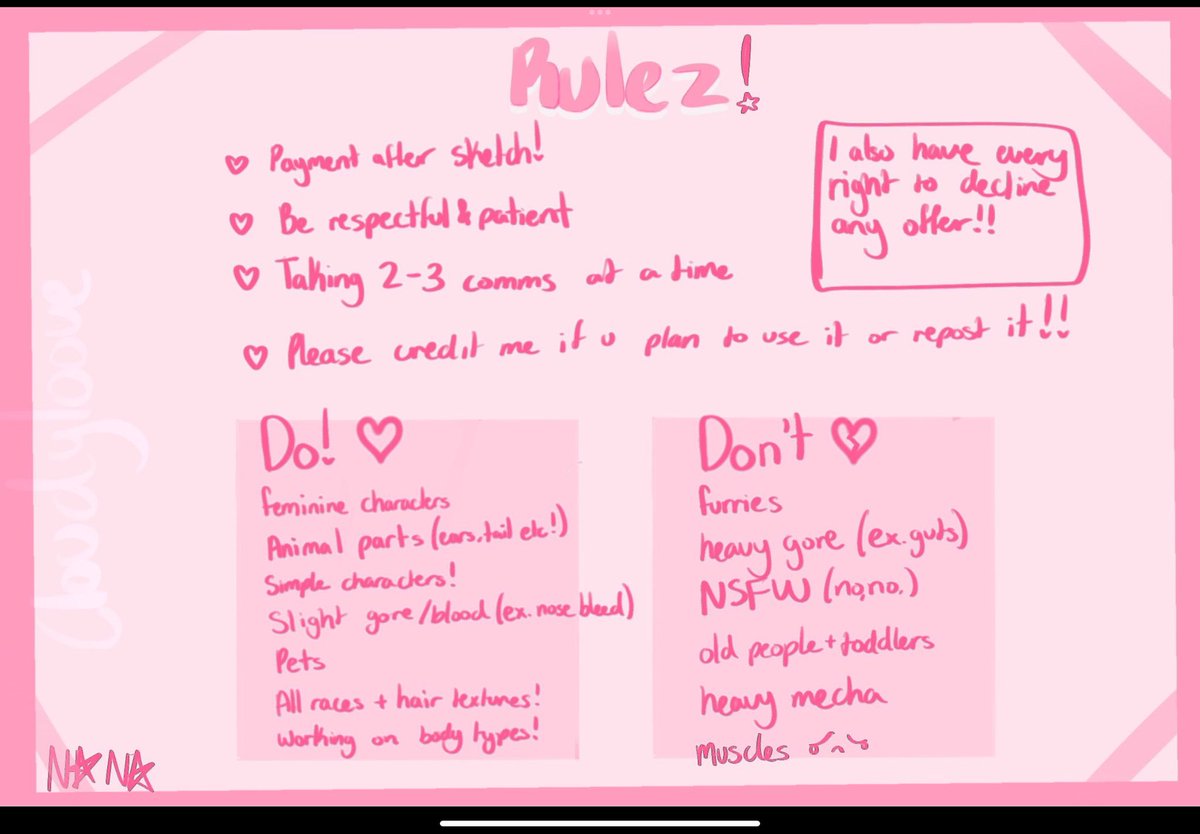 Rulez!
Payment after sketch!
Be respectful & patient
Taking 2-3 comms at a time
Please credit me if u plan to use it or repost it!!
I also have every
right to decline
any offer!!
Do!
feminine characters
Animal parts (ears, tail etc!)
Simple characters!
Slight gore/blood (ex. nose bleed)
Pets
All races + hair textures!
Working on body types!
Don't
furries
heavy gore (ex. guts)
NSFW (no, no.)
old people + toddlers
heavy mecha
muscles
NANA